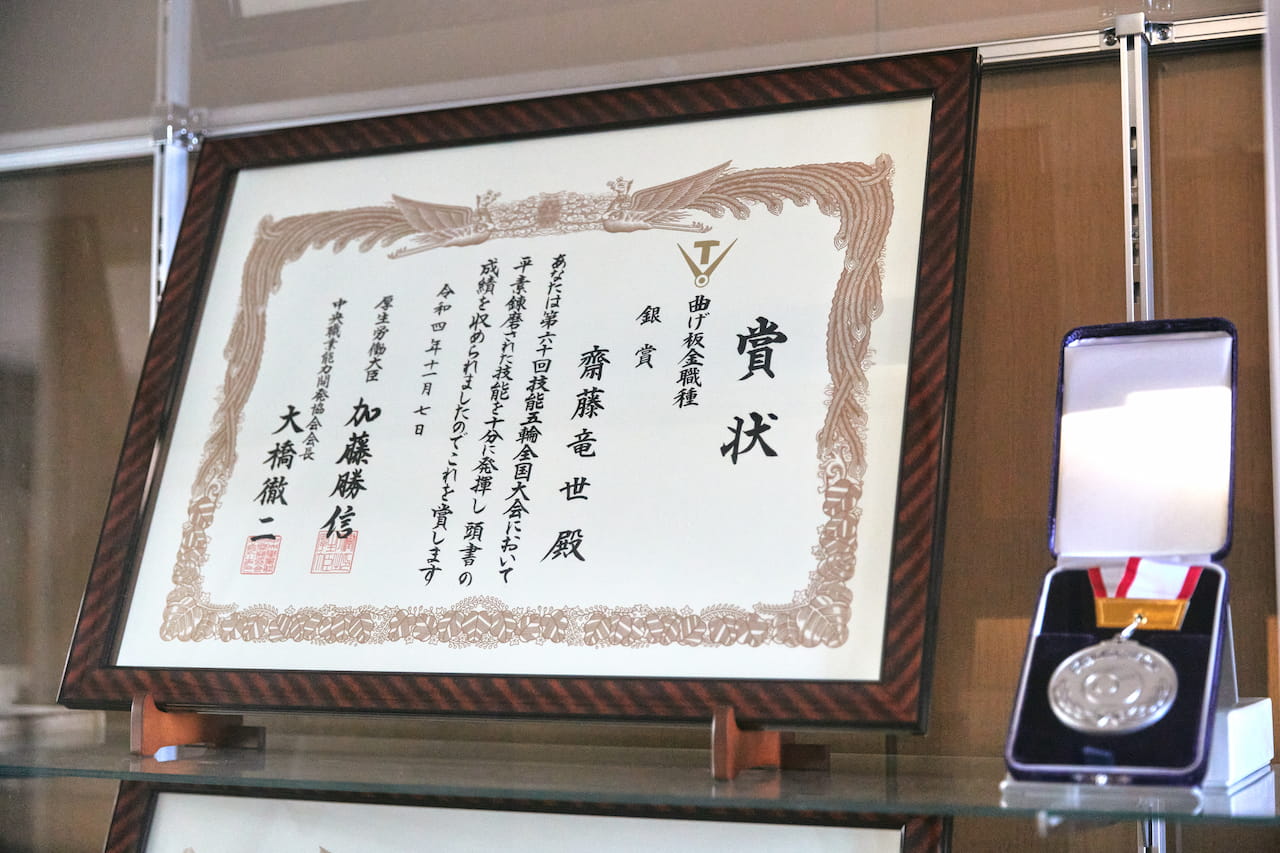 賞状
曲げ板金職種
銀賞
齋藤竜世殿
あなたは第六十回技能五輪全国大会において
平素錬磨された技能を十分に発揮し頭書の
成績を収められましたのでこれを賞します
令和四年十一月七日
厚生労働大臣 加藤勝信
中央職業能力開発協会会長 大橋徹二